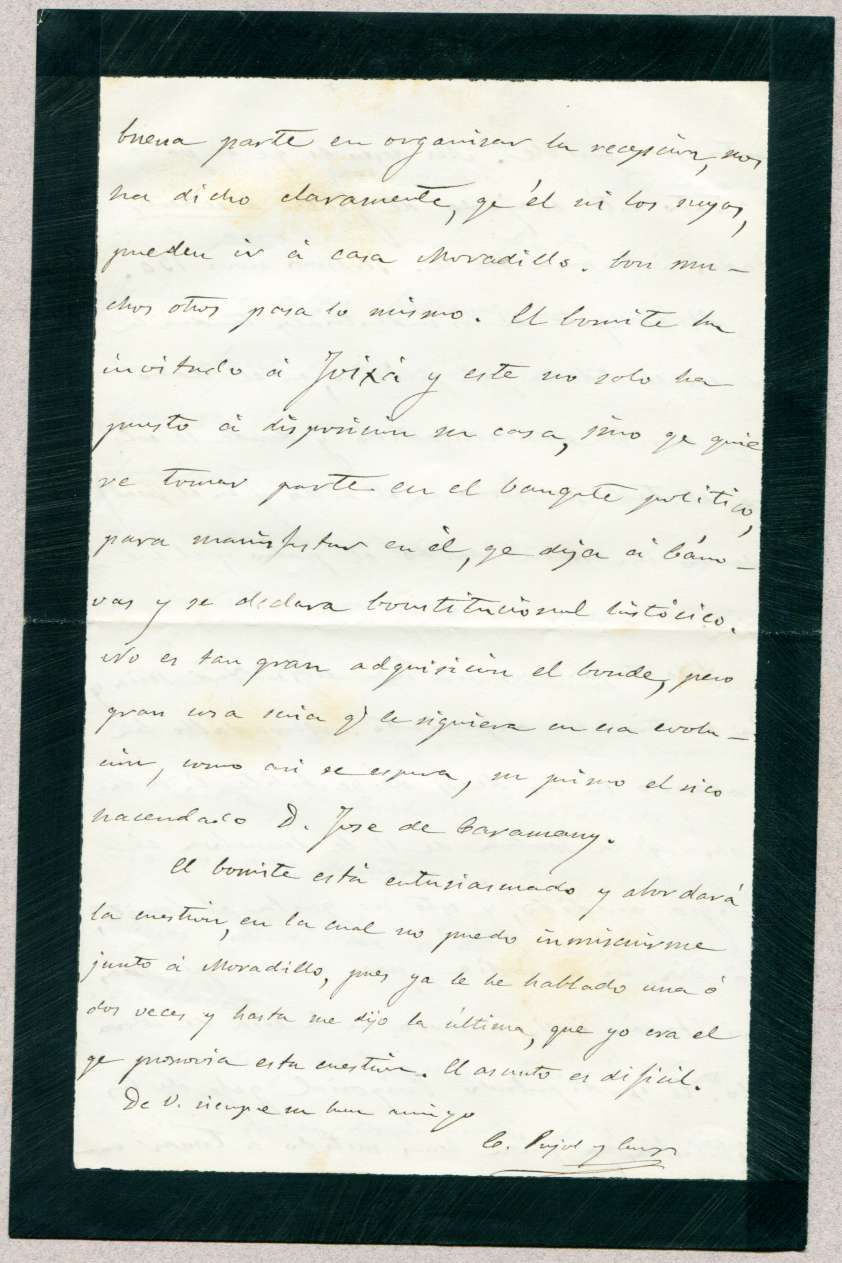 buena parte en organisar la recepcion, nos
ha dicho claramente, qe él ni los suyos,
pueden ir á casa Moradillo. Con mu-
chos otros pasa lo mismo. El Comite ha
invitado á Foixá y este no solo ha
puesto á disposicion su casa, sino qe quie
re tomar parte en el banqete politico,
para manifestar en él, qe deja á Cáno-
vas y se declara Constitucional histórico.
No es tan gran adquisicion el Conde, pero
gran cosa seria q) le siguiera en esa evolu-
cion, como asi se espera, su primo el rico
hacendado D. Jose de Caramany.
El Comite está entusiasmado y abordará
la cuestion, en la cual no puedo inmiscuirme
junto á Moradillo, pues ya le he hablado una ó
dos veces y hasta me dijo la última, que yo era el
qe promovia esta cuestion. El asunto es dificil.
De V. siempre su buen amigo
C. Pujol y Camps